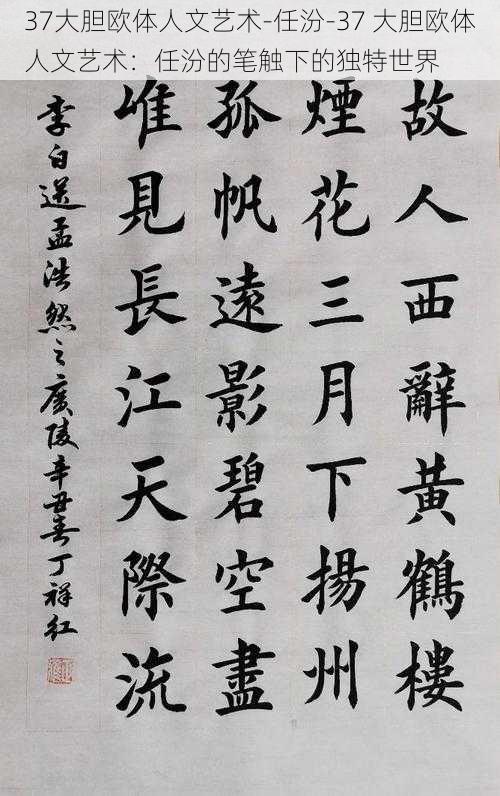 37大胆欧体人文艺术-任汾-37 大胆欧体
人文艺术：任汾的笔触下的独特世界
故人西辭黃鶴樓
煙花三月下揚州
孤帆遠影碧空盡
唯見長江天際流
李白送孟浩然之廣陵辛丑春丁祥红